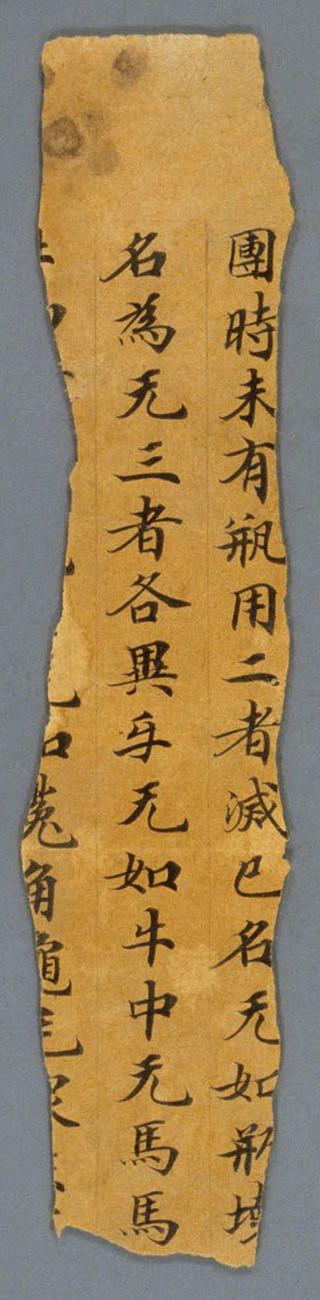 團時未有瓶用二者滅已名无如瓶壞
名為无三者各異乎无如牛中无馬馬
如菟角龜毛